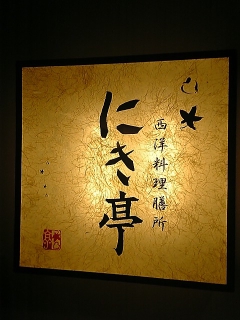 西洋料理膳所
にき亭